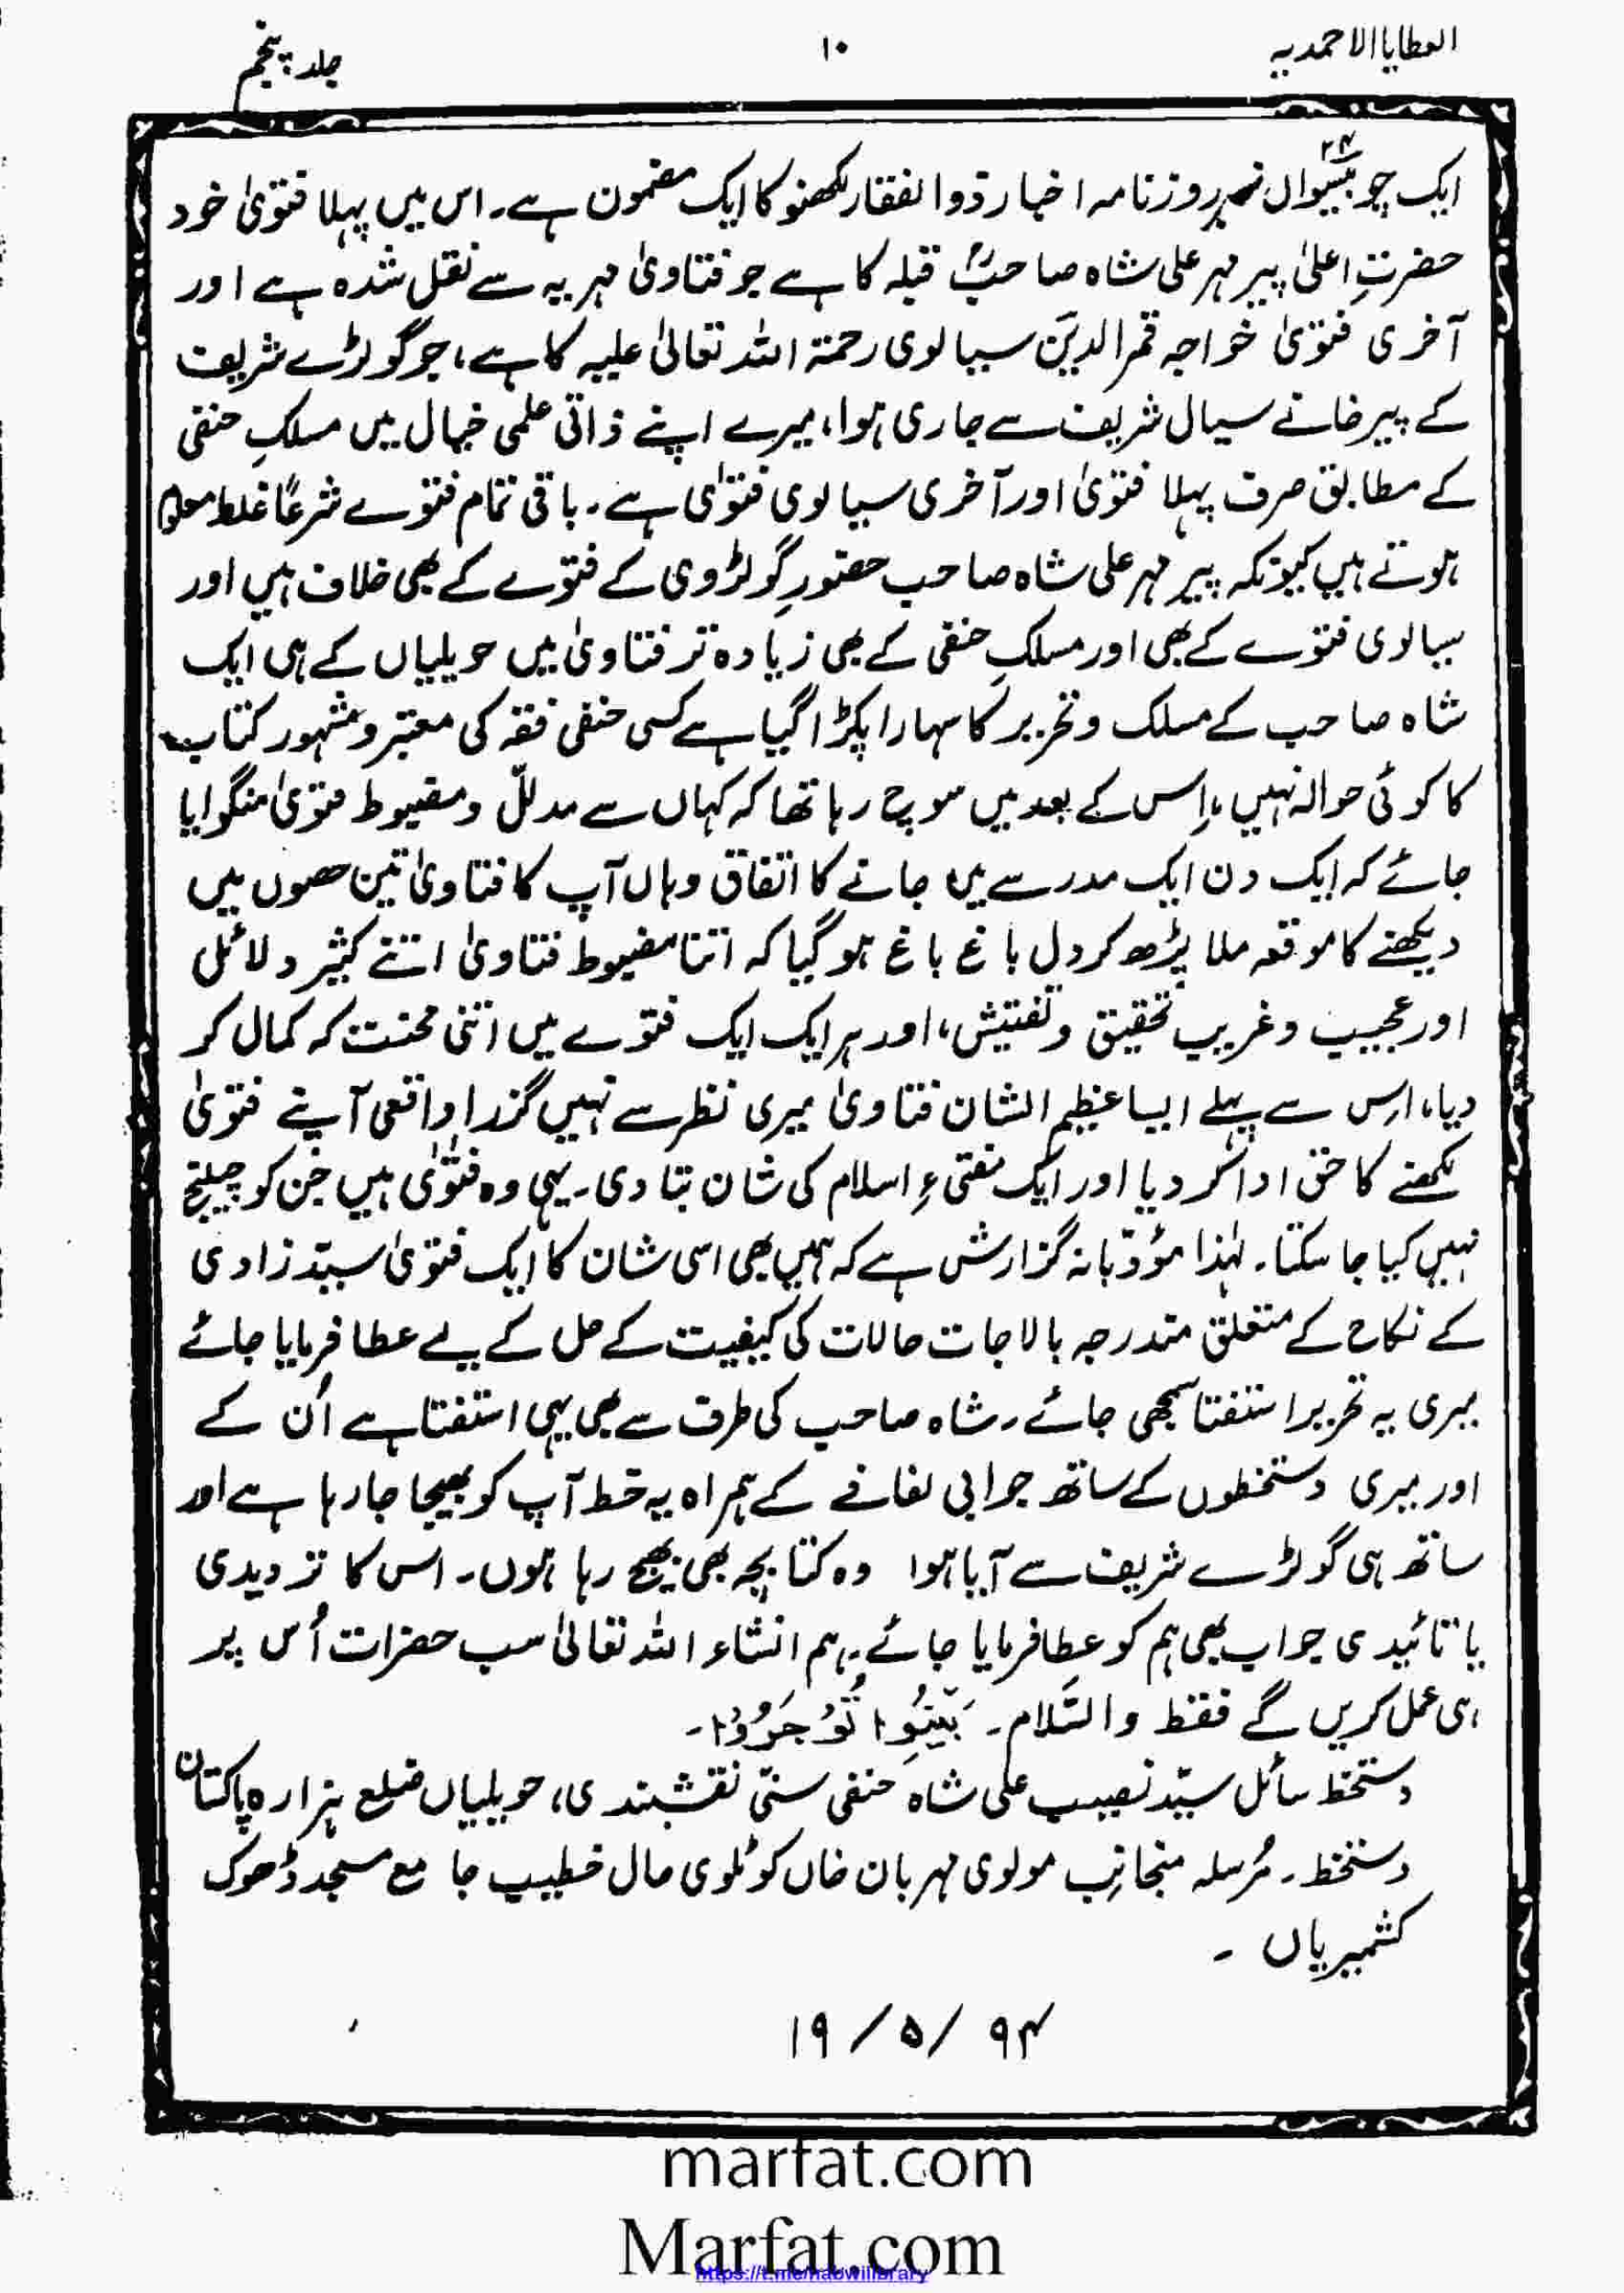 العطایا الاحمدیہ
۱۰
جلد پنجم
ایک چوبیسواں ۲۴ نمبر روزنامہ اخبار ذوالفقار لکھنو کا ایک مضمون ہے۔ اس میں پہلا فتویٰ خود
حضرتِ اعلیٰ پیر مہر علی شاہ صاحبؒ قبلہ کا ہے جو فتاویٰ مہریہ سے نقل شدہ ہے اور
آخری فتویٰ خواجہ قمر الدین سیالوی رحمۃ اللہ تعالیٰ علیہ کا ہے، جو گولڑے شریف
کے پیر خانے سیال شریف سے جاری ہوا، میرے اپنے ذاتی علمی خیال میں مسلکِ حنفی
کے مطابق صرف پہلا فتویٰ اور آخری سیالوی فتوٰی ہے۔ باقی تمام فتوے شرعًا غلط معلوم
ہوتے ہیں کیونکہ پیر مہر علی شاہ صاحب حضورِ گولڑوی کے فتوے کے بھی خلاف ہیں اور
سیالوی فتوے کے بھی اور مسلکِ حنفی کے بھی زیادہ تر فتاویٰ میں حویلیاں کے ہی ایک
شاہ صاحب کے مسلک و تحریر کا سہارا پکڑا گیا ہے کسی حنفی فقہ کی معتبر و مشہور کتاب
کا کوئی حوالہ نہیں، اِس کے بعد میں سوچ رہا تھا کہ کہاں سے مدلّل و مضبوط فتویٰ منگوایا
جائے کہ ایک دن ایک مدرسے میں جانے کا اتفاق وہاں آپ کا فتاویٰ تین حصوں میں
دیکھنے کا موقعہ ملا پڑھ کر دل باغ باغ ہو گیا کہ اتنا مضبوط فتاویٰ اتنے کثیر دلائل
اور عجیب و غریب تحقیق و تفتیش، اور ہر ایک ایک فتوے میں اتنی محنت کہ کمال کر
دیا، اِس سے پہلے ایسا عظیم الشان فتاویٰ میری نظر سے نہیں گزرا واقعی آپنے فتویٰ
لکھنے کا حق ادا کر دیا اور ایک مفتیءِ اسلام کی شان بتا دی۔ یہی وہ فتوٰی ہیں جن کو چیلنج
نہیں کیا جا سکتا۔ لہٰذا مؤدّبانہ گزارش ہے کہ ہمیں بھی اسی شان کا ایک فتویٰ سیّد زادی
کے نکاح کے متعلق مندرجہ بالا جات حالات کی کیفیت کے حل کے لیے عطا فرمایا جائے
میری یہ تحریر استفتا سمجھی جائے۔ شاہ صاحب کی طرف سے بھی یہی استفتا ہے اُن کے
اور میری دستخطوں کے ساتھ جوابی لفافے کے ہمراہ یہ خط آپ کو بھیجا جا رہا ہے اور
ساتھ ہی گولڑے شریف سے آیا ہوا وہ کتابچہ بھی بھیج رہا ہوں۔ اس کا تردیدی
یا تائیدی جواب بھی ہم کو عطا فرمایا جائے۔ ہم انشاء اللہ تعالیٰ سب حضرات اُس پر
ہی عمل کریں گے فقط والسّلام۔ بَیِّنُوا تُوْجَرُوْا۔
دستخط سائل سیّد نصیب علی شاہ حنفی سنّی نقشبندی، حویلیاں ضلع ہزارہ پاکستان
دستخط۔ مُرسلہ منجانِب مولوی مہربان خاں کوٹلوی حال خطیب جامع مسجد ڈھوک
کشمیریاں ۔
۱۹/۵/۹۴
marfat.com
Marfat.com
https://t.me/nabwilibrary